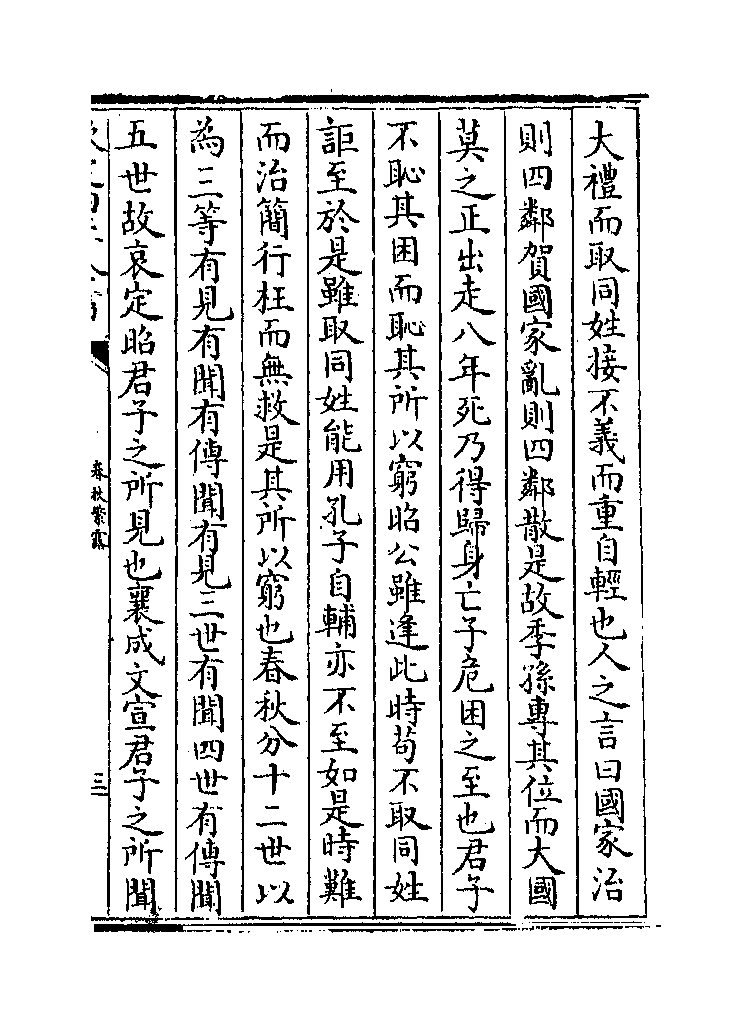 大禮而取同姓接不義而重自輕也人之言曰國家治
則四鄰賀國家亂則四鄰散是故季孫專其位而大國
莫之正出走八年死乃得歸身亡子危困之至也君子
不恥其困而恥其所以窮昭公雖逢此時茍不取同姓
詎至於是雖取同姓能用孔子自輔亦不至如是時難
而治簡行枉而無救是其所以窮也春秋分十二世以
為三等有見有聞有傳聞有見三世有聞四世有傳聞
五世故哀定昭君子之所見也襄成文宣君子之所聞
春秋繁露
三